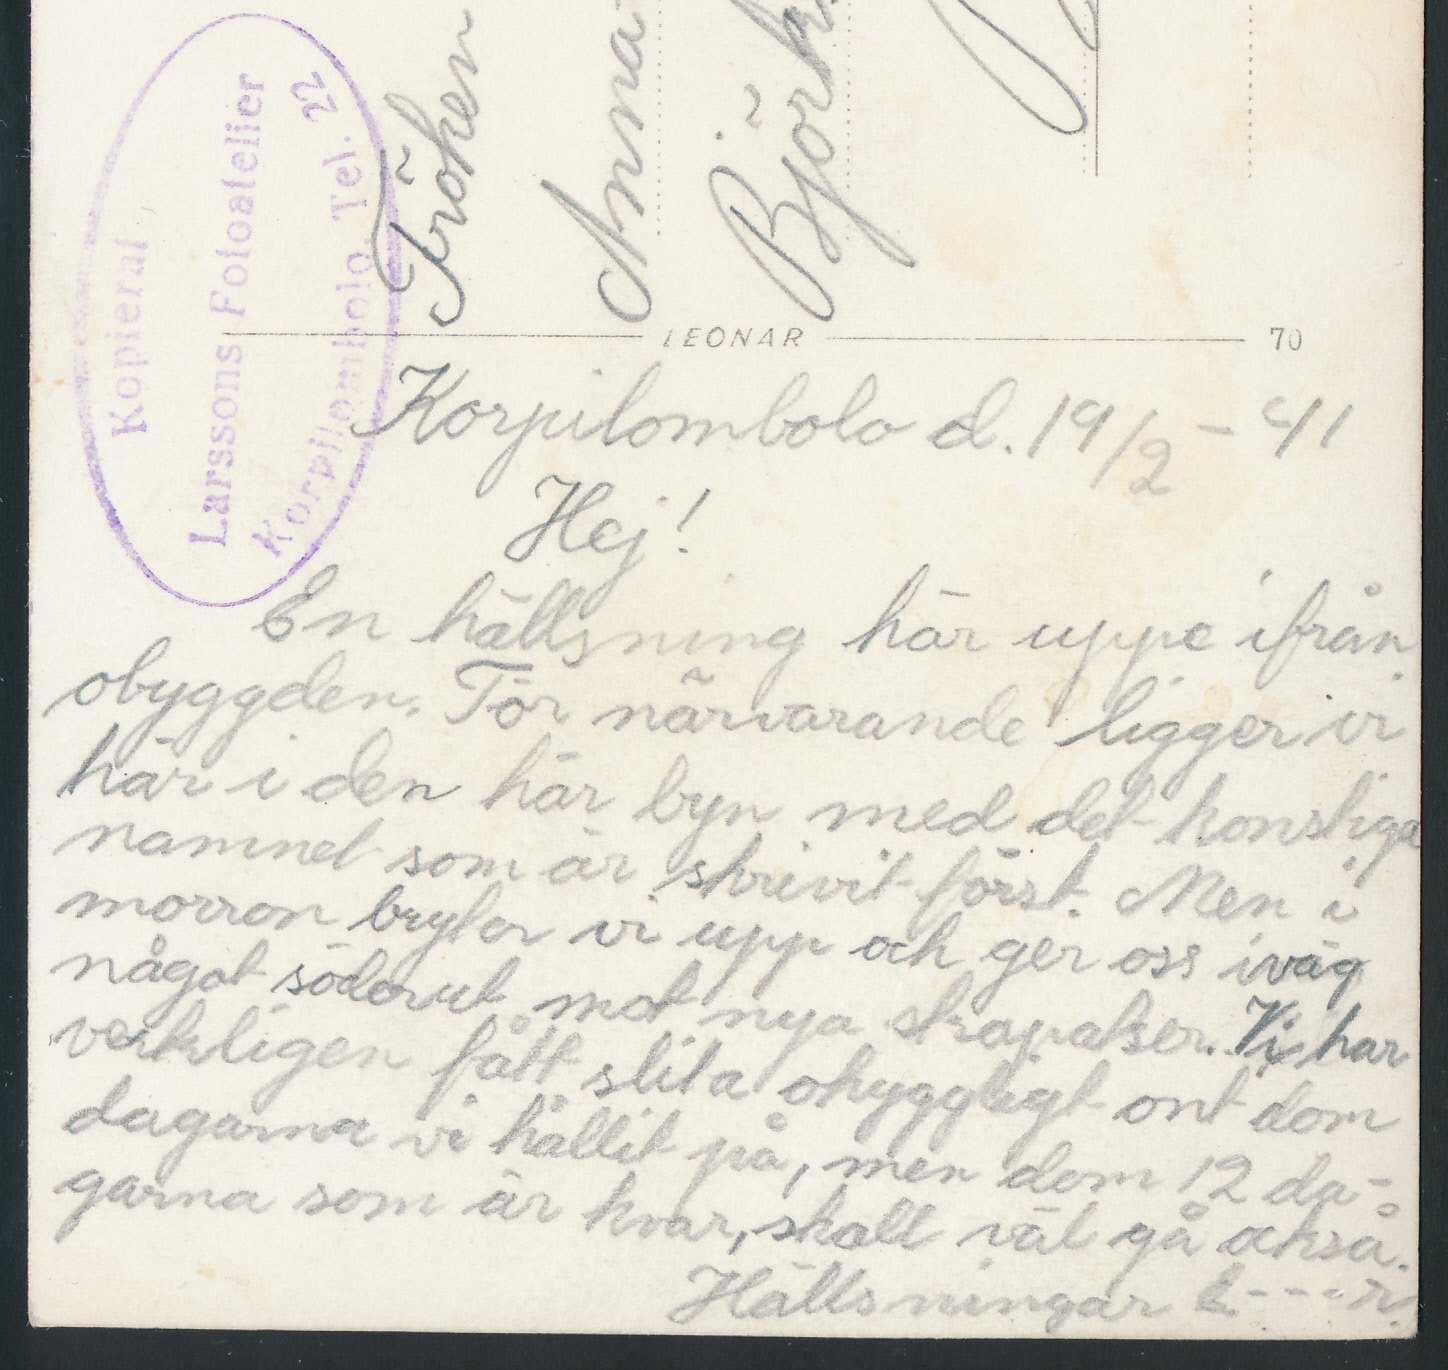 Kopierat
Larssons Fotoatelier
Korpilombolo. Tel. 22
Fröken
Anna
LEONAR 70
Korpilombolo d. 19/2 - 41
Hej!
En hällsning här uppe ifrån
obyggden. För närvarande ligger vi
här i den här byn med det konstiga
namnet som är skrivit först. Men i
morron bryter vi upp och ger oss iväg
något söderut mot nya strapatser. Vi har
verkligen fått slita ohyggligt ont dom
dagarna vi hållit på, men dom 12 da-
garna som är kvar, skall väl gå också.
Hällsningar E----r.